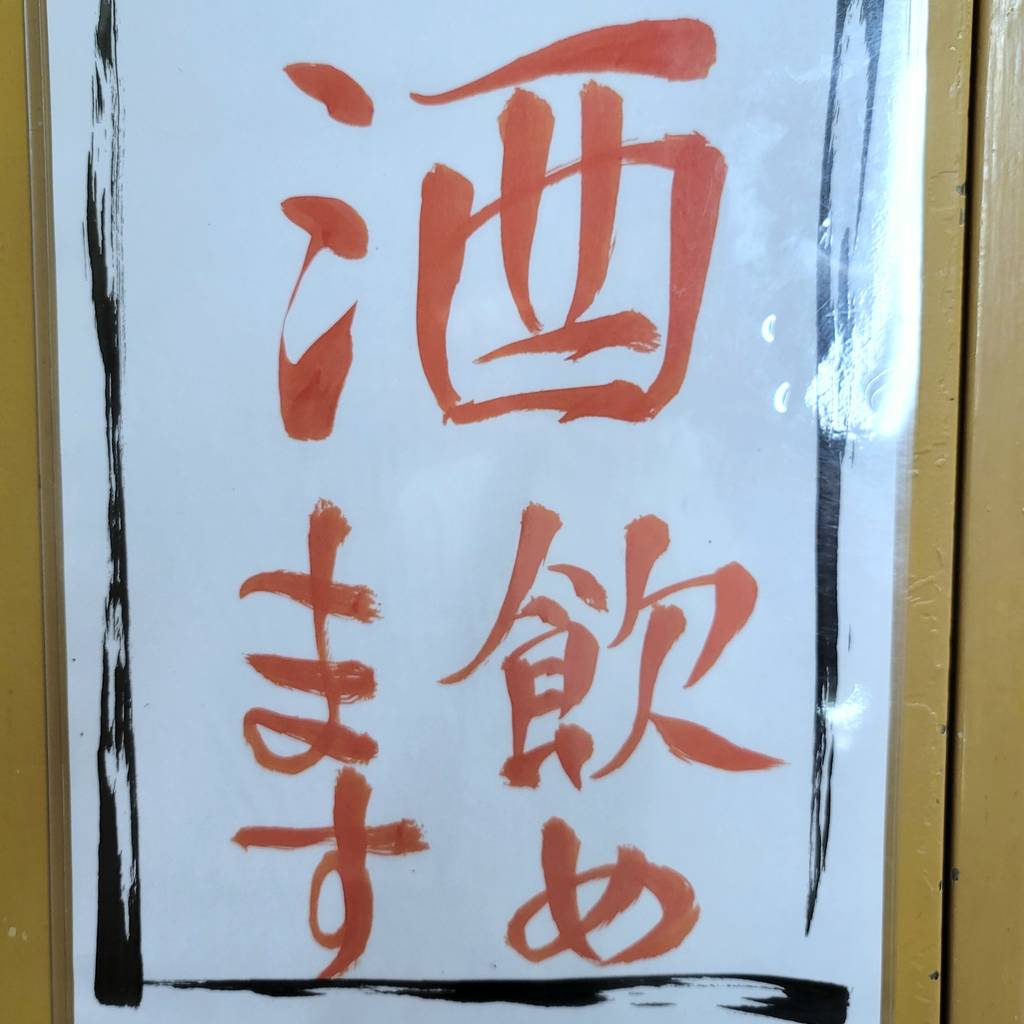 酒
飲め
ます